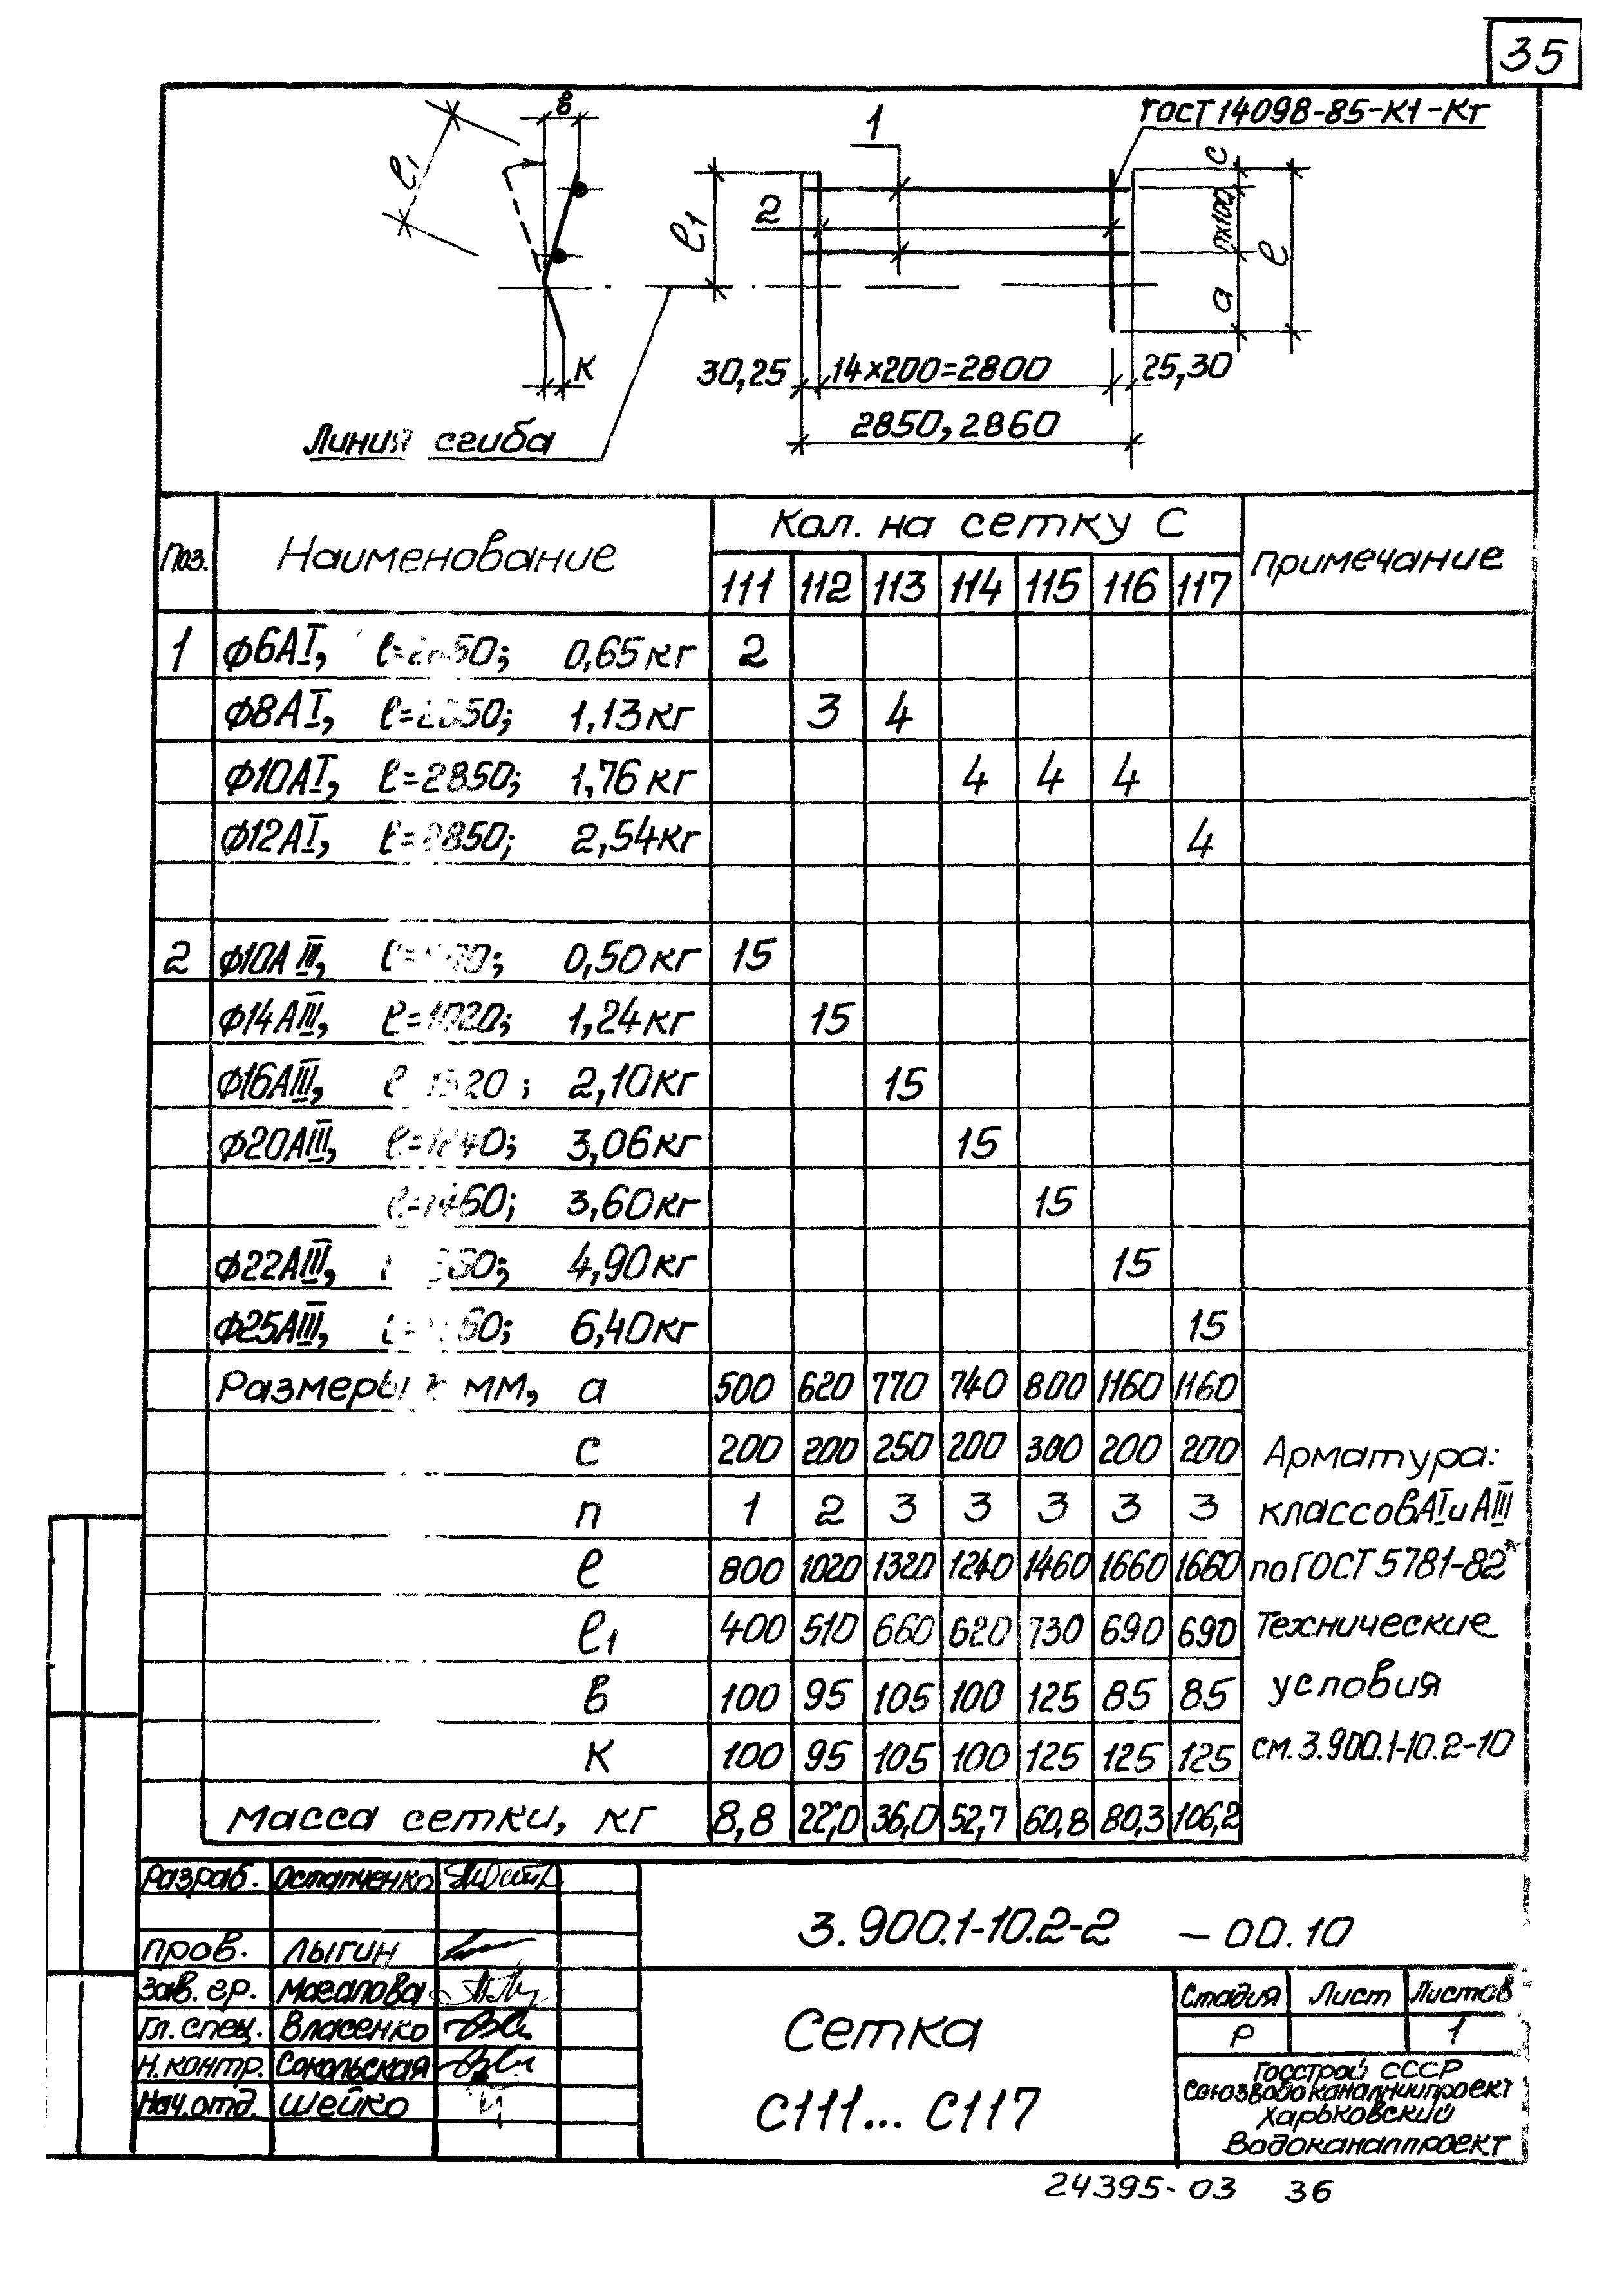 35
в
ℓ1
К
Линия сгиба
1
2
ℓ1
ГОСТ 14098-85-К1-Кт
с
п×100
а
ℓ
30,25 14×200=2800 25,30
2850, 2860
Поз. Наименование Кол. на сетку С Примечание
111 112 113 114 115 116 117
1 ϕ6АI, 0,65 кг 2
ϕ8АI, 1,13 кг 3 4
ϕ10АI, ℓ=2850; 1,76 кг 4 4 4
ϕ12АI, ℓ=2850; 2,54 кг 4
2 ϕ10АIII, 0,50 кг 15
ϕ14АIII, ℓ=1020; 1,24 кг 15
ϕ16АIII, 2,10 кг 15
ϕ20АIII, ℓ=1240; 3,06 кг 15
ℓ=1460; 3,60 кг 15
ϕ22АIII, 4,90 кг 15
ϕ25АIII, 6,40 кг 15
Размеры в мм, а 500 620 770 740 800 1160 1160
с 200 200 250 200 300 200 200
п 1 2 3 3 3 3 3
ℓ 800 1020 1320 1240 1460 1660 1660
ℓ1 400 510 660 620 730 690 690
в 100 95 105 100 125 85 85
К 100 95 105 100 125 125 125
Масса сетки, кг 8,8 22,0 36,0 52,7 60,8 80,3 106,2
Арматура:
классов АI и АIII
по ГОСТ 5781-82*
Технические
условия
см. 3.900.1-10.2-10
Разраб. Остапченко
Пров. Лыгин
Зав. гр. Магалова
Гл. спец. Власенко
Н. контр. Сокольская
Нач. отд. Шейко
3.900.1-10.2-2 - 00.10
Сетка
С111... С117
Стадия Лист Листов
Р 1
Госстрой СССР
Союзводоканалниипроект
Харьковский
Водоканалпроект
24395-03 36